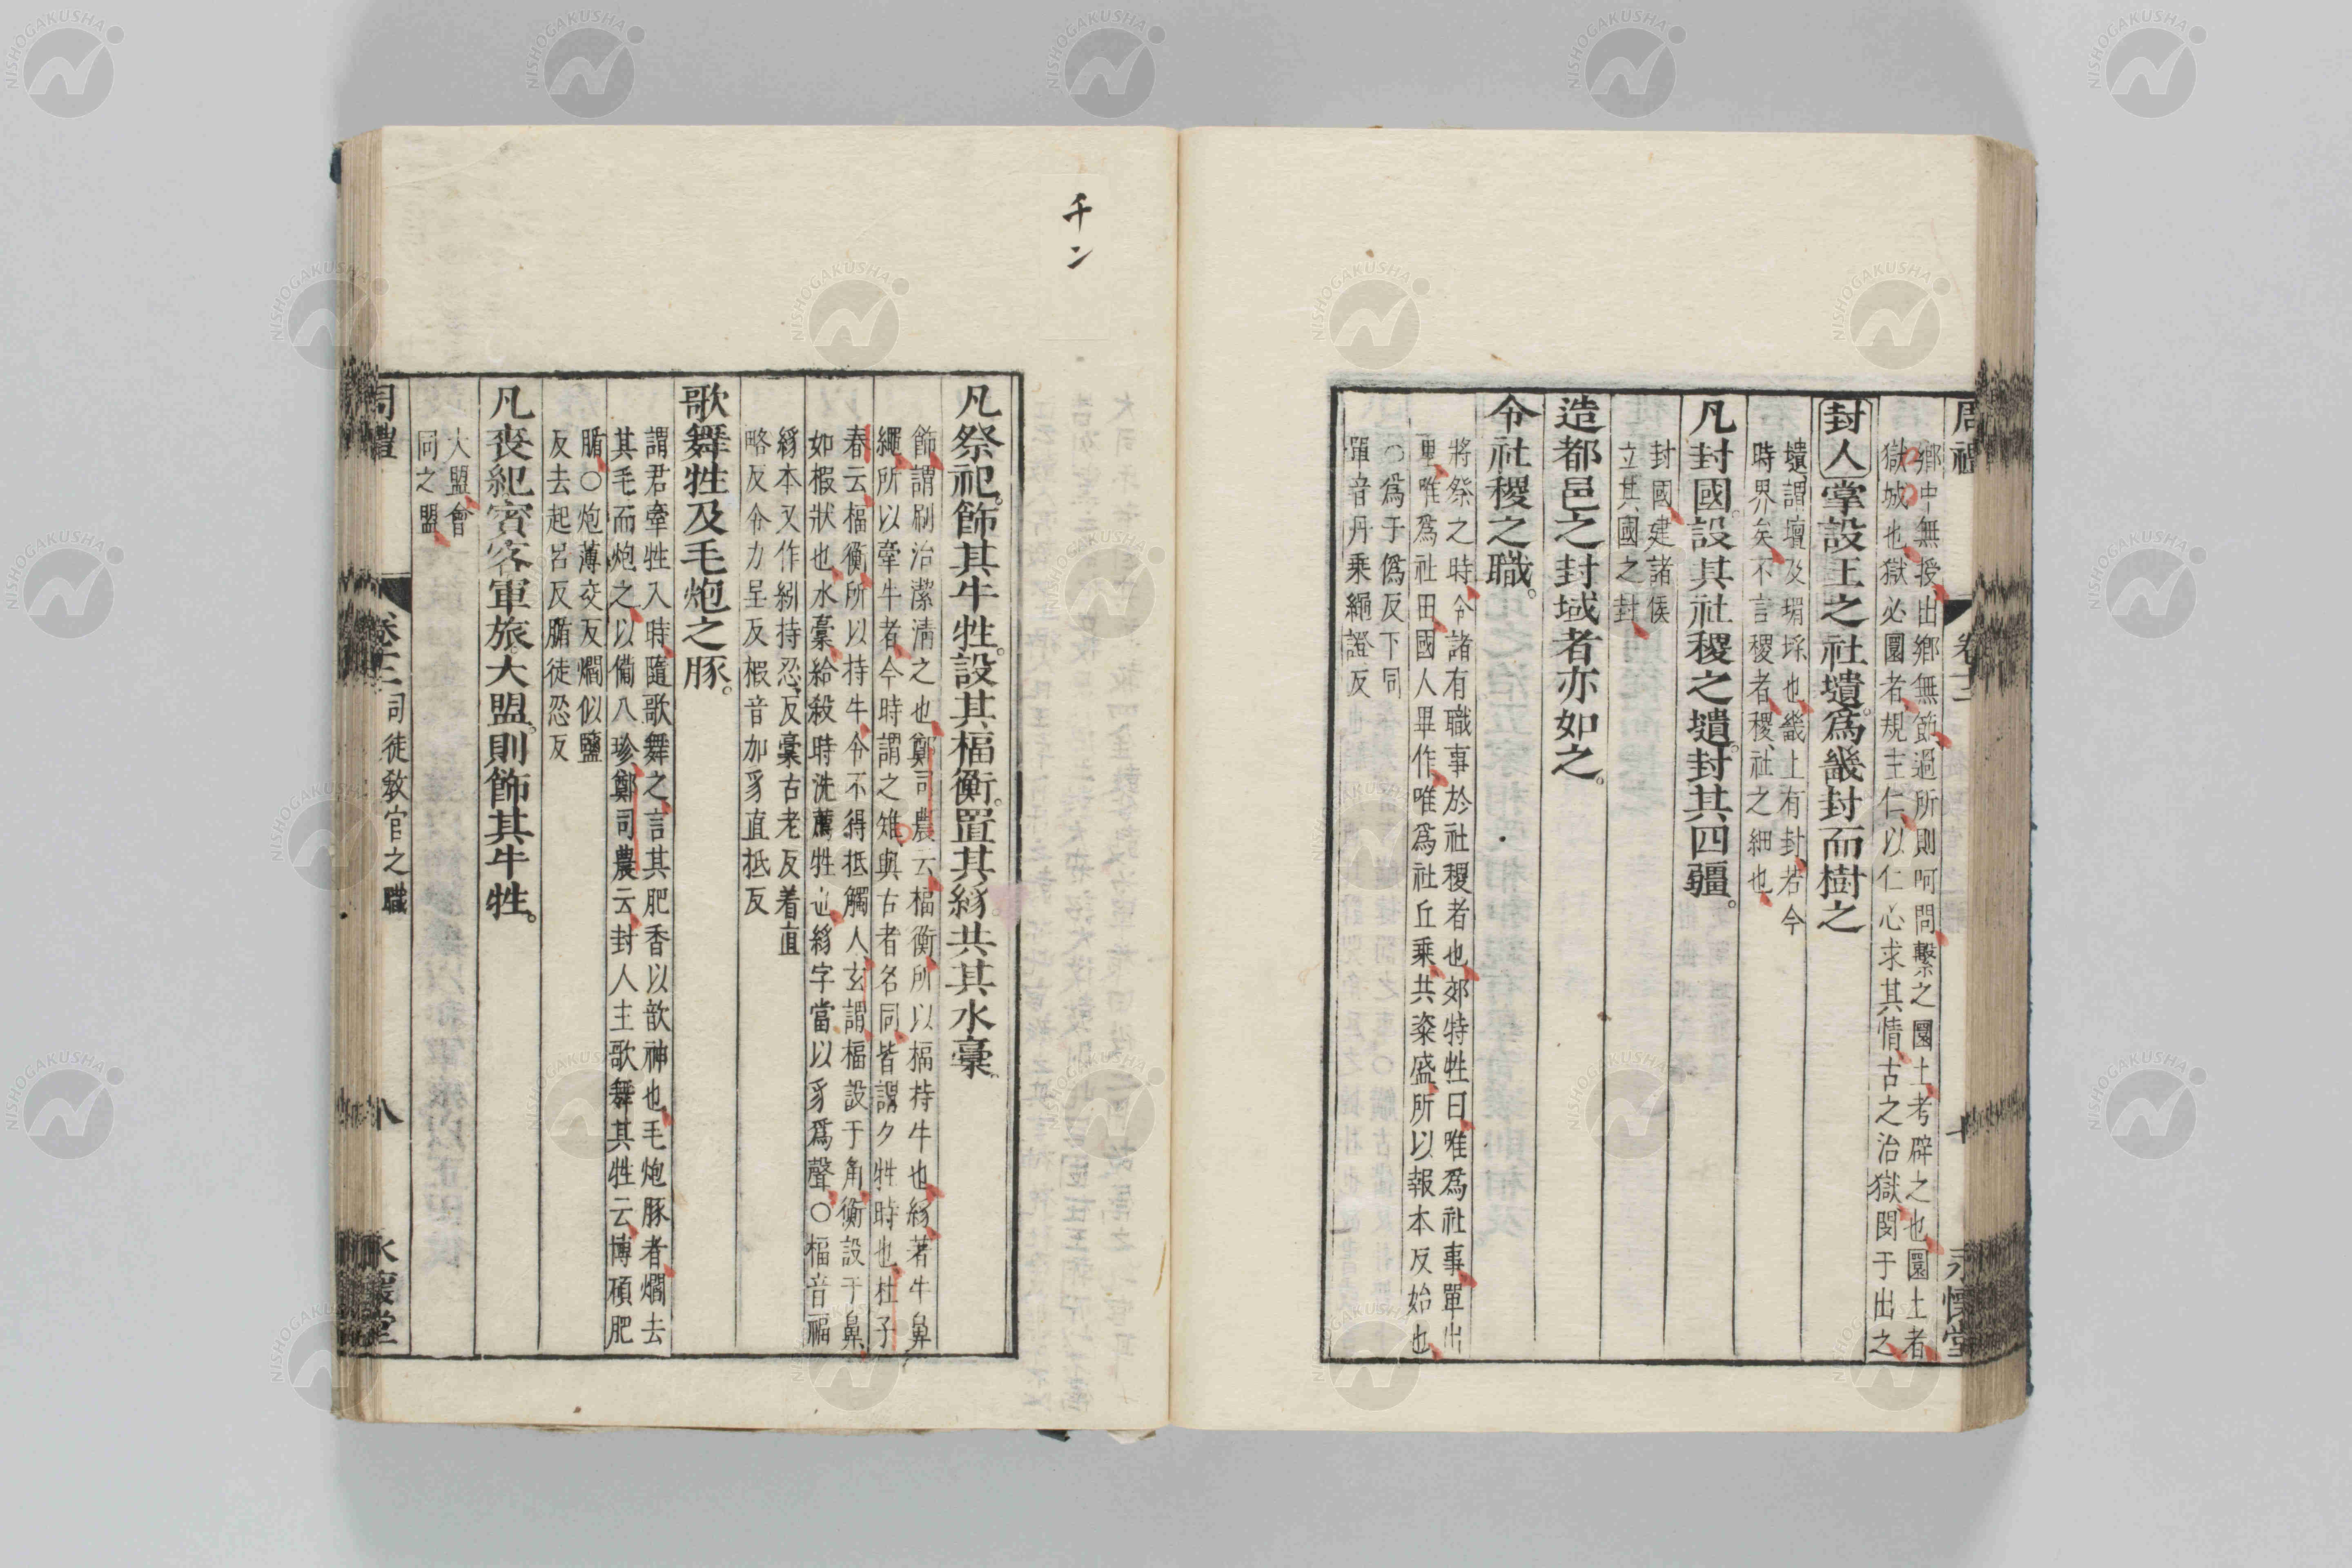 周禮 卷十三 十 永懷堂
鄉中無授出鄉無節過所則呵問繫之圜土考辟之也圜土者
獄城也獄必圜者規主仁以仁心求其情古之治獄閔于出之
封人掌設王之社壝爲畿封而樹之
壝謂壇及堳埒也畿上有封若今
時界矣不言稷者稷社之細也
凡封國設其社稷之壝封其四疆。
封國建諸侯
立其國之封
造都邑之封域者亦如之。
令社稷之職。
將祭之時令諸有職事於社稷者也郊特牲曰唯爲社事單出
里唯爲社田國人畢作唯爲社丘乘共粢盛所以報本反始也
○爲于僞反下同
單音丹乘繩證反
千ン
凡祭祀。飾其牛牲。設其楅衡。置其絼。共其水稾。
飾謂刷治潔清之也鄭司農云楅衡所以楅持牛也絼著牛鼻
繩所以牽牛者今時謂之雉與古者名同皆謂夕牲時也杜子
春云楅衡所以持牛令不得抵觸人玄謂楅設于角衡設于鼻
如椵狀也水稾給殺時洗薦牲也絼字當以豸爲聲○楅音福
絼本又作紖持忍反稾古老反着直
略反令力呈反椵音加豸直抵反
歌舞牲及毛炮之豚。
謂君牽牲入時隨歌舞之言其肥香以歆神也毛炮豚者爓去
其毛而炮之以備八珍鄭司農云封人主歌舞其牲云博碩肥
腯○炮薄交反爓似鹽
反去起呂反腯徒忍反
凡喪紀賓客軍旅。大盟。則飾其牛牲。
大盟會
同之盟
周禮 卷三 司徒敎官之職 八 永懷堂
NISHOGAKUSHA